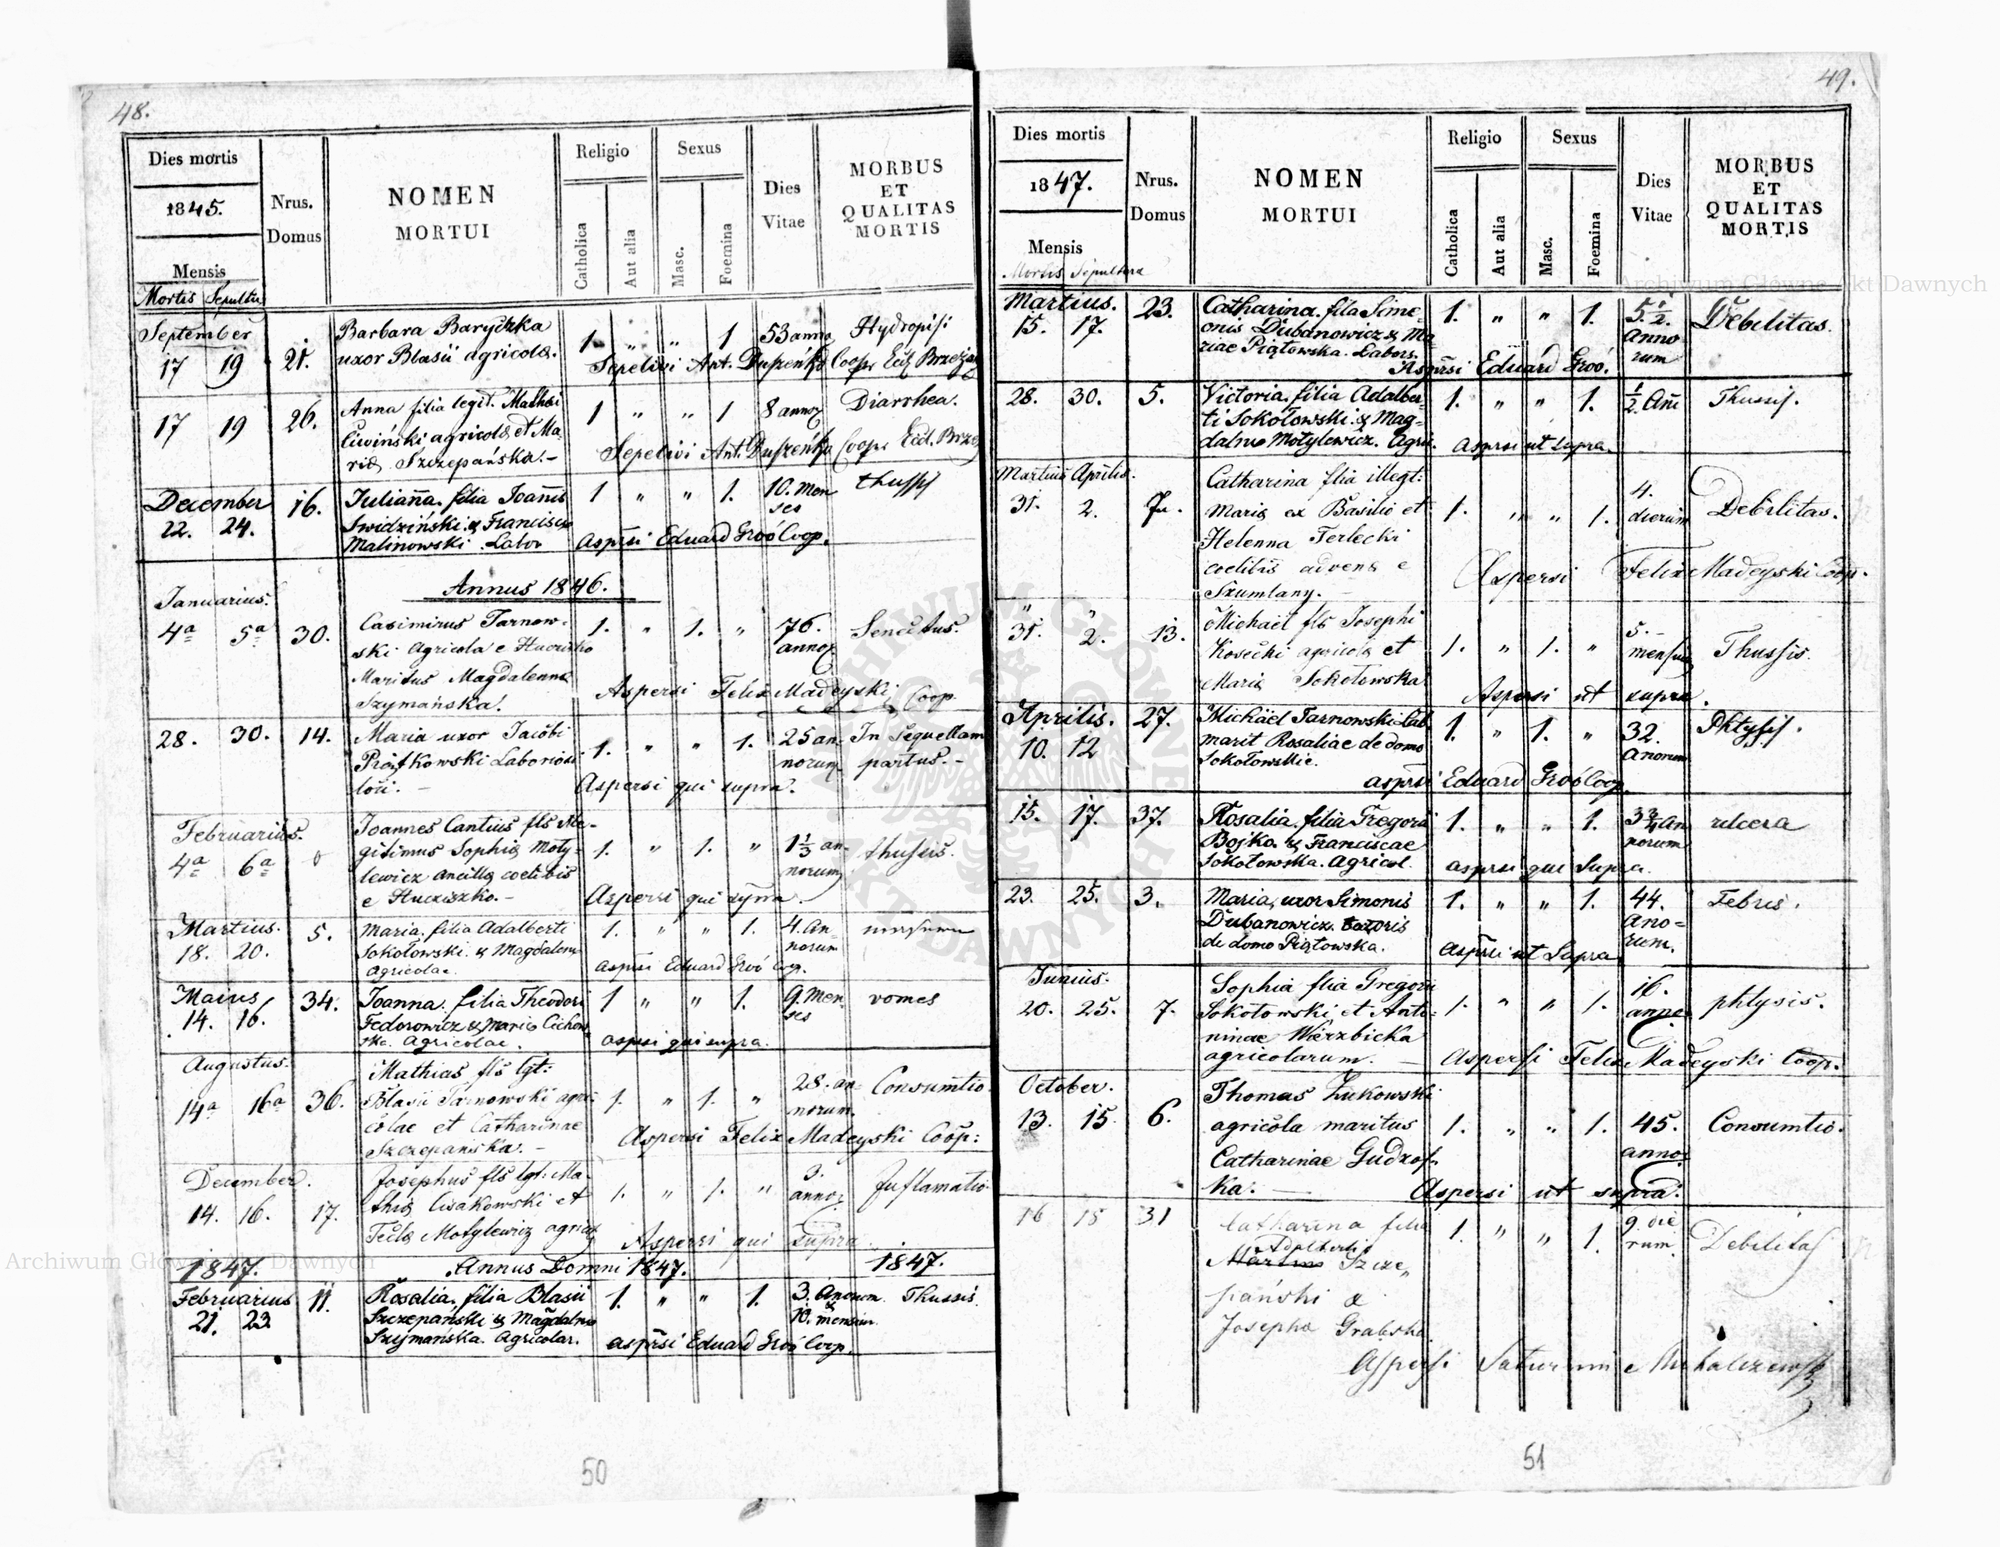 48.
Dies mortis
1845.
Mensis
Mortis Sepultu
Nrus.
Domus
NOMEN
MORTUI
Religio
Catholica
Aut alia
Sexus
Masc.
Foemina
Dies
Vitae
MORBUS
ET
QUALITAS
MORTIS
September
17 19 21.
Barbara Baryczka
uxor Blasii agricolæ.
1 " " 1 53 anno Hydropisi
Sepelivi Ant. Coopr Eccl Brzeża
17 19 26.
Anna filia legit. Mathei
Ciwiński agricolæ et Ma
riæ Szczepańska.-
1 " " 1 8 annoꝝ Diarrhea.
Sepelivi Ant. Coopr Eccl. Brzeż
December
22. 24. 16.
Julianna filia Joannis
Swidziński & Francisca
Malinowski. Labor
1 " " 1. 10. Men
ses
thussis
Asprsi Eduard Groó Coop.
Annus 1846.
Januarius.
4a 5a 30.
Casimirus Tarnow-
ski Agricola e Huczisko
Maritus Magdalenna
Szymańska.
1. " 1. " 76.
annoꝝ
Senectus.
Aspersi Felix Madeyski Coop.
28. 30. 14.
Maria uxor Jacobi
Laboriosi
1. " " 1. 25 an-
norum
In Sequellam
partus.-
Aspersi qui supra.
Februarius.
4a 6a
Joannes Cantius fls ille-
gitimus Sophiæ Moty-
lewicz ancillæ coelibis
e Huczizko.-
1. " 1. " 1 1/3 an-
norum
thussis.
Aspersi qui supra.
Martius.
18. 20. 5.
Maria filia Adalberti
Sokołowski & Magdalena
Agricolae.
1. " " 1. 4. An-
norum
Asprsi Eduard Groó Coop.
Maius
14. 16. 34.
Joanna filia Theodori
Fedorowicz & Maria Cichow
ska. Agricolae.
1 " " 1. 9. Men-
ses
vomes
asprsi qui supra.
Augustus.
14a 16a 36.
Mathias fls lgt:
Blasii Tarnowski agri-
colae et Catharinae
Szczepańska.-
1. " 1. " 28. an-
norum.
Consumtio
Aspersi Felix Madeyski Coop:
December.
14. 16. 17.
Josephus fls lgt: Ma-
thiæ et
Teclæ Motylewicz agricol
1. " 1. " 3.
annoꝝ
Inflamatio
Aspersi qui supra
1847. Annus Domni 1847. 1847.
Februarius
21. 23 11.
Rosalia filia Blasii
Szczepański & Magdalena
Szymańska. Agricolar.
1. " " 1. 3. Anorum
&
10. mensium.
Thussis.
asprsi Eduard Groó Coop.
50
49.
Dies mortis
1847.
Mensis
Mortis Sepultura
Nrus.
Domus
NOMEN
MORTUI
Religio
Catholica
Aut alia
Sexus
Masc.
Foemina
Dies
Vitae
MORBUS
ET
QUALITAS
MORTIS
Martius.
15. 17. 23.
Catharina filia Sime-
onis Dubanowicz & Ma-
riae Piątowska. Labors.
1. " " 1. 5 1/2.
Anno
rum
Debilitas.
Asprsi Eduard Groó.
28. 30. 5.
Victoria filia Adalber-
ti Sokołowski & Mag-
dalena Motylewicz. Agri.
1. " " 1. 1/2 Ani Thussis.
Asprsi ut supra.
Martius Aprilis.
31. 2.
Catharina flia illegt:
Mariæ ex Basilio et
Helenna Terlecki
coelibis advenæ e
Szumlany.-
1. " " 1. 4.
dierum
Debilitas.
Aspersi Felix Madeyski Coop.
" "
31. 2. 13.
Michael fls Josephi
Kosecki agricolæ et
Mariæ Sokołowska
1. " 1. " 5.-
mensium
Thussis.
Aspersi ut supra.
Aprilis.
10. 12 27.
Michael Tarnowski Lab
marit Rosaliae de domo
Sokołowskie.
1. " 1. " 32.
Anorum
Phtysis.
asprsi Eduard Groó Coop.
15. 17. 37.
Rosalia filia Gregorii
Bojko & Franciscae
Sokołowska. Agricol.
1. " " 1. 3 3/4 An
norum
ulcera
asprsi qui Supra.
23. 25. 3.
Maria, uxor Simonis
Dubanowicz
de domo Piątowska.
1. " " 1. 44.
Ano-
rum.
Febris.
asprsi ut Supra
Junius.
20. 25. 7.
Sophia flia Gregorii
Sokołowski et Anto-
ninae Wierzbicka
agricolarum.-
1. " " 1. 16.
annoꝝ
phtysis.
Aspersi Felix Madeyski Coop.
October.
13. 15 6.
Thomas Żukowski
agricola maritus
Catharinae Gudzof-
ka.-
1. " " 1. 45.
annoꝝ
Consumtio.
Aspersi ut supra.
16 18 31
Catharina filia
Adalberti
Martini Szcze-
pański &
Josepha Grabska
1. " " 1. 9. die
rum.
Debilitas
Aspersi
51
Archiwum Główne Akt Dawnych
Archiwum Główne Akt Dawnych
ARCHIWUM GŁÓWNE AKT DAWNYCH